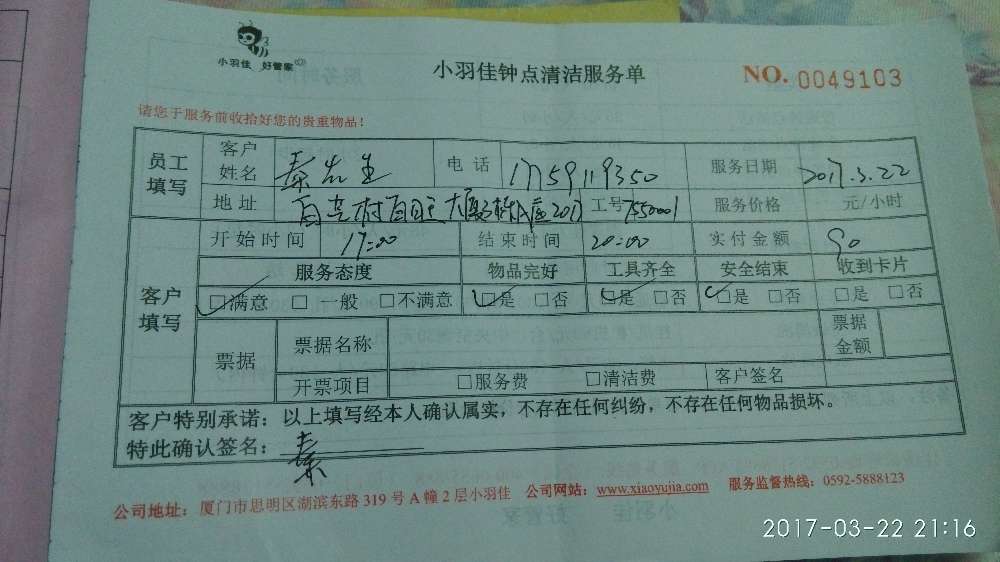 小羽佳 好管家
小羽佳钟点清洁服务单
NO. 0049103
请您于服务前收拾好您的贵重物品!
员工填写 客户姓名 秦先生 电话 17759119350 服务日期 2017.3.22
地址 工号 7550001 服务价格 元/小时
客户填写 开始时间 17:00 结束时间 20:00 实付金额 90
服务态度 物品完好 工具齐全 安全结束 收到卡片
☑满意 □一般 □不满意 ☑是 □否 ☑是 □否 ☑是 □否 □是 □否
票据 票据名称 票据金额
开票项目 □服务费 □清洁费 客户签名
客户特别承诺:以上填写经本人确认属实,不存在任何纠纷,不存在任何物品损坏。
特此确认签名: 秦
公司地址:厦门市思明区湖滨东路 319 号 A 幢 2 层小羽佳 公司网站:www.xiaoyujia.com 服务监督热线:0592-5888123
2017-03-22 21:16